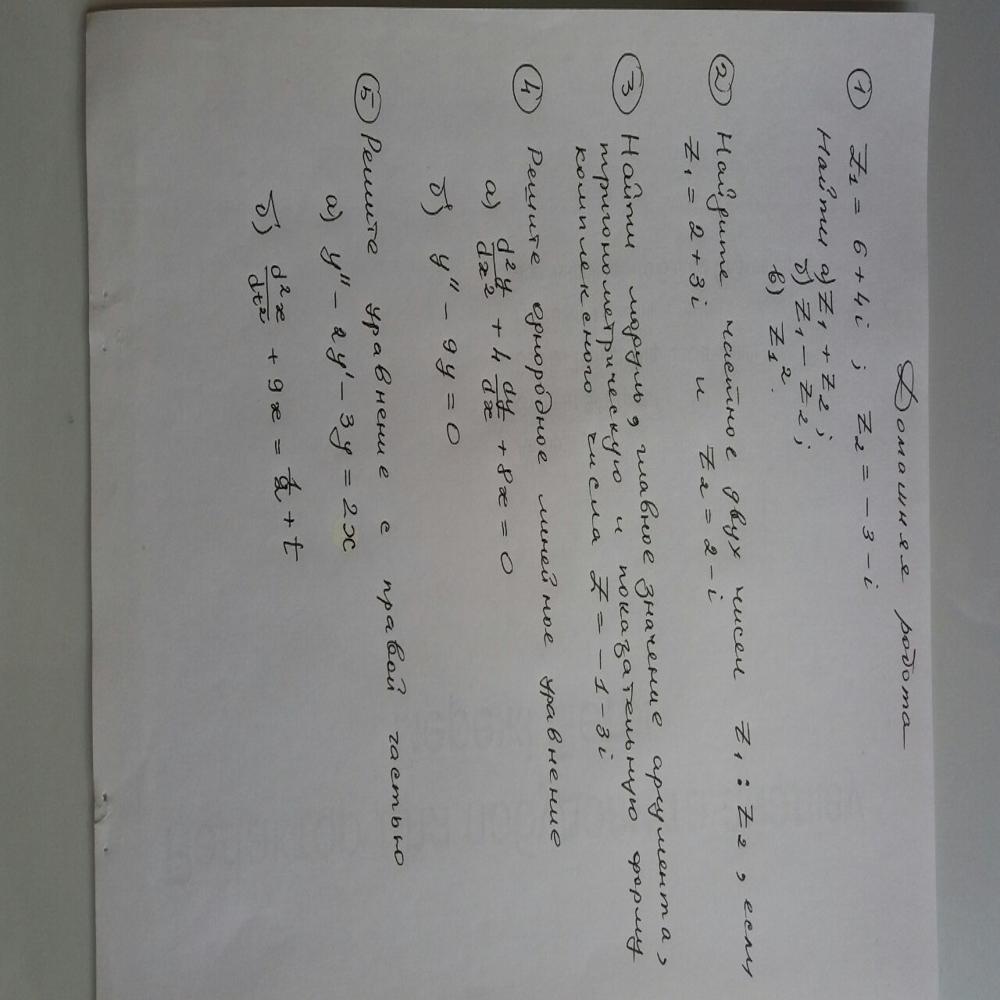 Домашняя работа
① Z₁ = 6 + 4i ; Z₂ = - 3 - i
Найти а) Z₁ + Z₂ ;
б) Z₁ - Z₂ ;
в) Z₁².
② Найдите частное двух чисел Z₁ : Z₂ , если
Z₁ = 2 + 3i и Z₂ = 2 - i
③ Найти модуль, главное значение аргумента,
тригонометрическую и показательную форму
комплексного числа Z = - 1 - 3i
④ Решите однородное линейное уравнение
а) d²y/dx² + 4 dy/dx + 8x = 0
б) y'' - 9y = 0
⑤ Решите уравнение с правой частью
а) y'' - 2y' - 3y = 2x
б) d²x/dt² + 9x = 1/2 + t